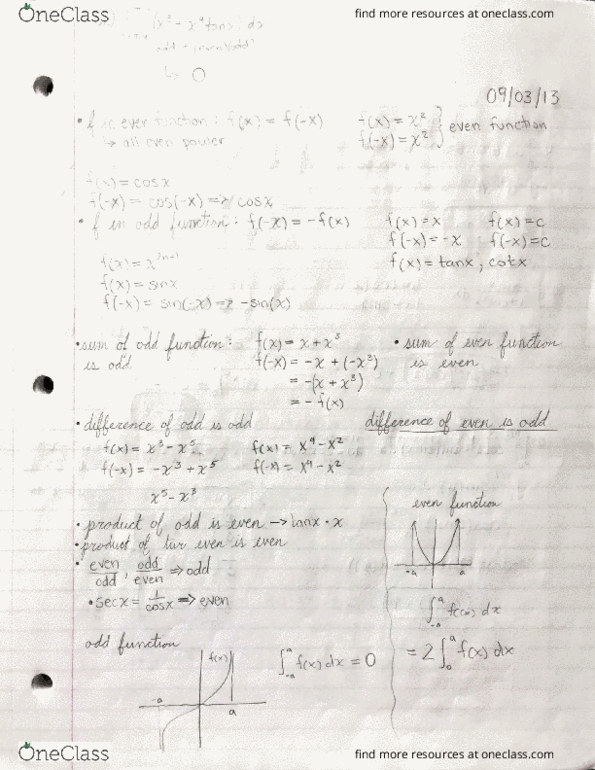 OneClass
find more resources at oneclass.com
(x³ - x⁴tanx) dx
↳ 0
09/03/13
• f is even function : f(x) = f(-x)
→ all even power
f(x) = x²
f(-x) = x² } even function
f(x) = cosx
f(-x) = cos(-x) => cosx
• f in odd function : f(-x) = -f(x)
f(x) = x f(x) = c
f(-x) = -x f(-x) = c
f(x) = tanx, cotx
f(x) = sinx
f(-x) = sin(-x) => -sin(x)
• sum of odd function :
is odd
f(x) = x + x³
f(-x) = -x + (-x³)
= -(x + x³)
= - f(x)
• sum of even function
is even
• difference of odd is odd
f(x) = x³ - x⁵
f(-x) = -x³ + x⁵
x⁵ - x³
f(x) = x⁴ - x²
f(-x) = x⁴ - x²
difference of even is odd
• product of odd is even → tanx · x
• product of two even is even
• even/odd, odd/even => odd
• secx = 1/cosx => even
odd function
f(x)
-a
a
∫₋ₐᵃ f(x) dx = 0
even function
-a
a
∫₋ₐᵃ f(x) dx
= 2∫₀ᵃ f(x) dx
OneClass
find more resources at oneclass.com